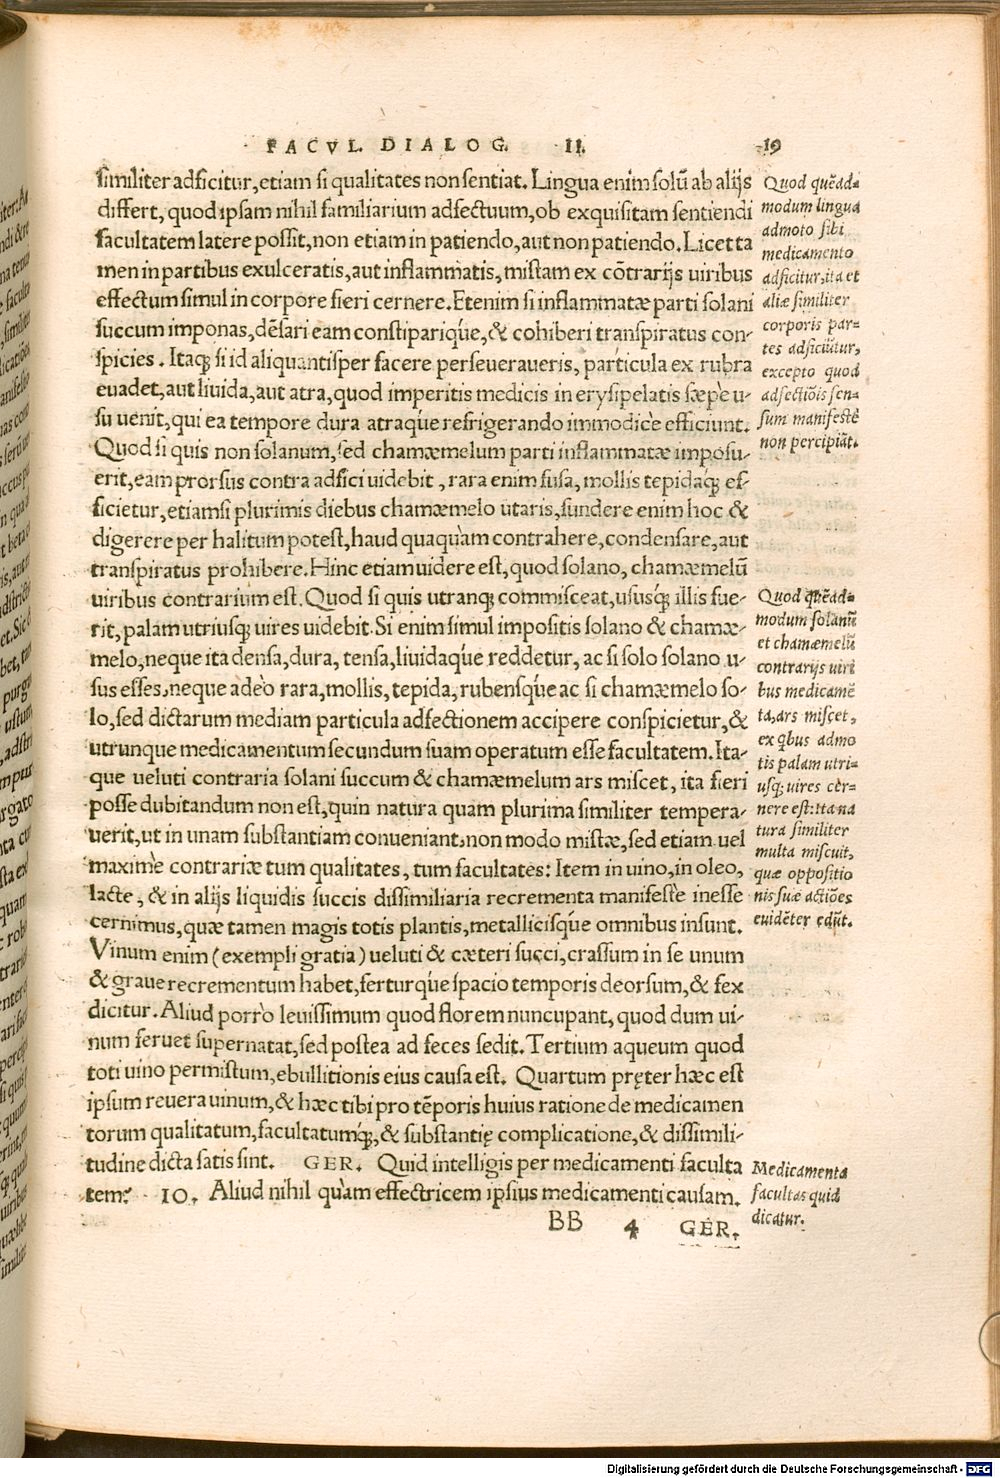 FACVL. DIALOG. II. 19
similiter adficitur, etiam si qualitates non sentiat. Lingua enim solũ ab alijs
differt, quod ipsam nihil familiarium adfectuum, ob exquisitam sentiendi
facultatem latere possit, non etiam in patiendo, aut non patiendo. Licet ta
men in partibus exulceratis, aut inflammatis, mistam ex cõtrarijs uiribus
effectum simul in corpore fieri cernere. Etenim si inflammatæ parti solani
succum imponas, dẽsari eam constipariq́ue, & cohiberi transpiratus con-
spicies. Itaq; si id aliquantisper facere perseueraueris, particula ex rubra
euadet, aut liuida, aut atra, quod imperitis medicis in erysipelatis sæpè u-
su uenit, qui ea tempore dura atraq́ue refrigerando immodicè efficiunt.
Quod si quis non solanum, sed chamæmelum parti inflammatæ imposu-
erit, eam prorsus contra adfici uidebit, rara enim fusa, mollis tepidaq; ef-
ficietur, etiamsi plurimis diebus chamæmelo utaris, fundere enim hoc &
digerere per halitum potest, haud quaquàm contrahere, condensare, aut
transpiratus prohibere. Hinc etiam uidere est, quod solano, chamæmelũ
uiribus contrarium est. Quod si quis utranq; commisceat, ususq́; illis fue-
rit, palam utriusq; uires uidebit. Si enim simul impositis solano & chamæ-
melo, neque ita densa, dura, tensa, liuidaq́ue reddetur, ac si solo solano u-
sus esses, neque adeò rara, mollis, tepida, rubensq́ue ac si chamæmelo so-
lo, sed dictarum mediam particula adfectionem accipere conspicietur, &
utrunque medicamentum secundum suam operatum esse facultatem. Ita-
que ueluti contraria solani succum & chamæmelum ars miscet, ita fieri
posse dubitandum non est, quin natura quam plurima similiter tempera-
uerit, ut in unam substantiam conueniant, non modo mistæ, sed etiam uel
maximè contrariæ tum qualitates, tum facultates: Item in uino, in oleo,
lacte, & in alijs liquidis succis dissimiliaria recrementa manifestè inesse
cernimus, quæ tamen magis totis plantis, metallicisq́ue omnibus insunt.
Vinum enim (exempli gratia) ueluti & cæteri succi, crassum in se unum
& graue recrementum habet, fertuŕque spacio temporis deorsum, & fex
dicitur. Aliud porrò leuissimum quod florem nuncupant, quod dum ui-
num feruet supernatat, sed postea ad feces sedit. Tertium aqueum quod
toti uino permistum, ebullitionis eius causa est. Quartum pręter hæc est
ipsum reuera uinum, & hæc tibi pro tẽporis huius ratione de medicamen
torum qualitatum, facultatumq́;, & substantię complicatione, & dissimili-
tudine dicta satis sint. GER. Quid intelligis per medicamenti faculta
tem? IO. Aliud nihil quàm effectricem ipsius medicamenti causam.
BB 4 GER.
Quod quẽad-
modum lingua
admoto sibi
medicamento
adficitur, ita et
aliæ similiter
corporis par-
tes adficiũtur,
excepto quod
adfectiõis sen-
sum manifestè
non percipiãt.
Quod quẽad-
modum solanũ
et chamæmelũ
contrarijs uiri
bus medicamẽ
ta, ars miscet,
ex q̃bus admo
tis palam utri-
usq; uires cer-
nere est: Ita na
tura similiter
multa miscuit,
quæ oppositio
nis suæ actiões
euidẽter edũt.
Medicamenta
facultas quid
dicatur.
Digitalisierung gefördert durch die Deutsche Forschungsgemeinschaft - DFG